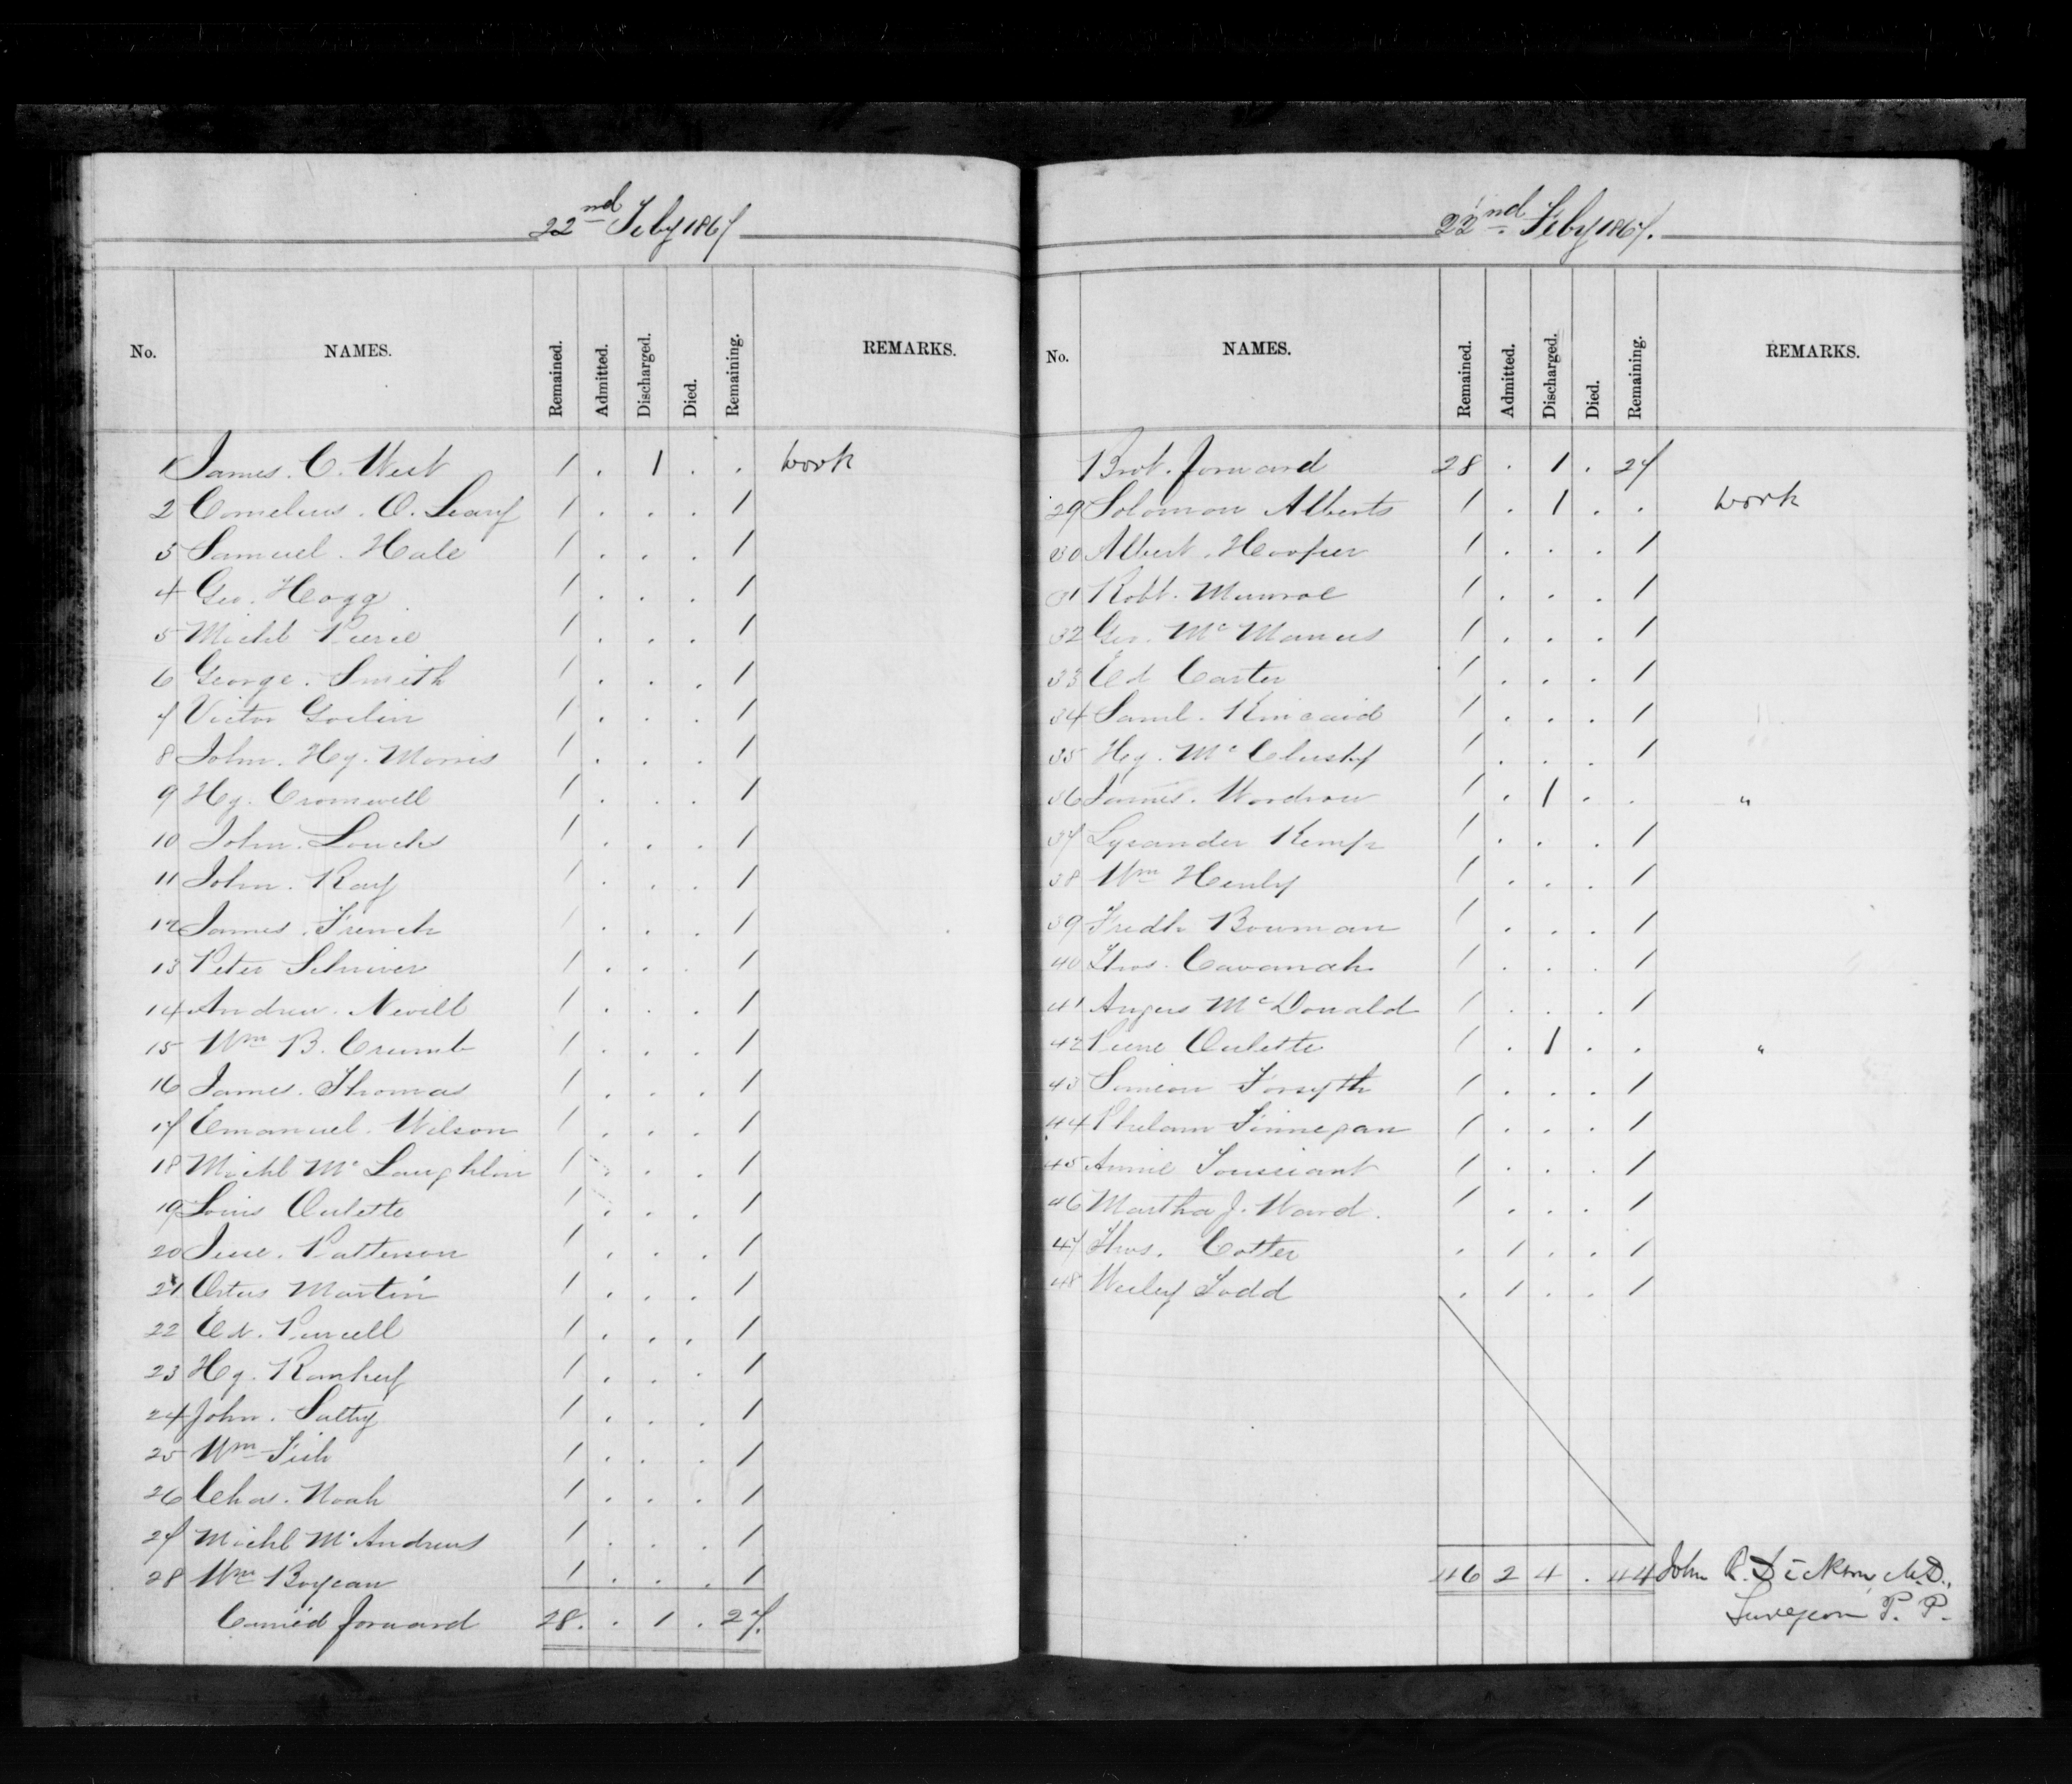 22nd Feby 1867
No. NAMES. Remained. Admitted. Discharged. Died. Remaining. REMARKS.
1 James. C. West 1 . 1 . . work
2 Cornelius. O. Leary 1 . . . 1
3 Samuel. Hale 1 . . . 1
4 Geo. Hogg 1 . . . 1
5 Michl Pierce 1 . . . 1
6 George. Smith 1 . . . 1
7 Victor Goslin 1 . . . 1
8 John. Hy. Morris 1 . . . 1
9 Hy. Cromwell 1 . . . 1
10 John. Loucks 1 . . . 1
11 John. Ray 1 . . . 1
12 James. French 1 . . . 1
13 Peter Schriver 1 . . . 1
14 Andrew. Nevill 1 . . . 1
15 Wm B. Crumb 1 . . . 1
16 James. Thomas 1 . . . 1
17 Emanuel. Wilson 1 . . . 1
18 Michl Mc Laughlin 1 . . . 1
19 Louis Oulette 1 . . . 1
20 Jesse. Patterson 1 . . . 1
21 Martin 1 . . . 1
22 Ed. Purcell 1 . . . 1
23 Hy. 1 . . . 1
24 John. 1 . . . 1
25 Wm Fish 1 . . . 1
26 Chas. Noah 1 . . . 1
27 Michl Mc Andrews 1 . . . 1
28 Wm 1 . . . 1
Carried forward 28 . . 1 . 27.
22nd. Feby 1867.
No. NAMES. Remained. Admitted. Discharged. Died. Remaining. REMARKS.
Brot. forward 28 . 1 . 27
29 Solomon Alberts 1 . 1 . . work
30 Albert. Hoopier 1 . . . 1
31 Robt. Munroe 1 . . . 1
32 Geo. Mc Manus 1 . . . 1
33 Ed Carter 1 . . . 1
34 Saml. Kincaid 1 . . . 1
35 Hy. Mc Clusky 1 . . . 1
36 James. Woodrow 1 . 1 . . "
37 Lysander Kemp 1 . . . 1
38 Wm Henly 1 . . . 1
39 Fredk Bowman 1 . . . 1
40 Thos. Cavanah 1 . . . 1
41 Angus Mc Donald 1 . . . 1
42 Pierre Oulette 1 . 1 . . "
43 Simeon Forsyth 1 . . . 1
44 Phelam Finnegan 1 . . . 1
45 Annie Toussiant 1 . . . 1
46 Martha J. Ward. 1 . . . 1
47 Thos. Cotter . 1 . . 1
48 Wesley Todd . 1 . . 1
46 2 4 . 44 John R. Dickson, M.D.,
Surgeon P. P.